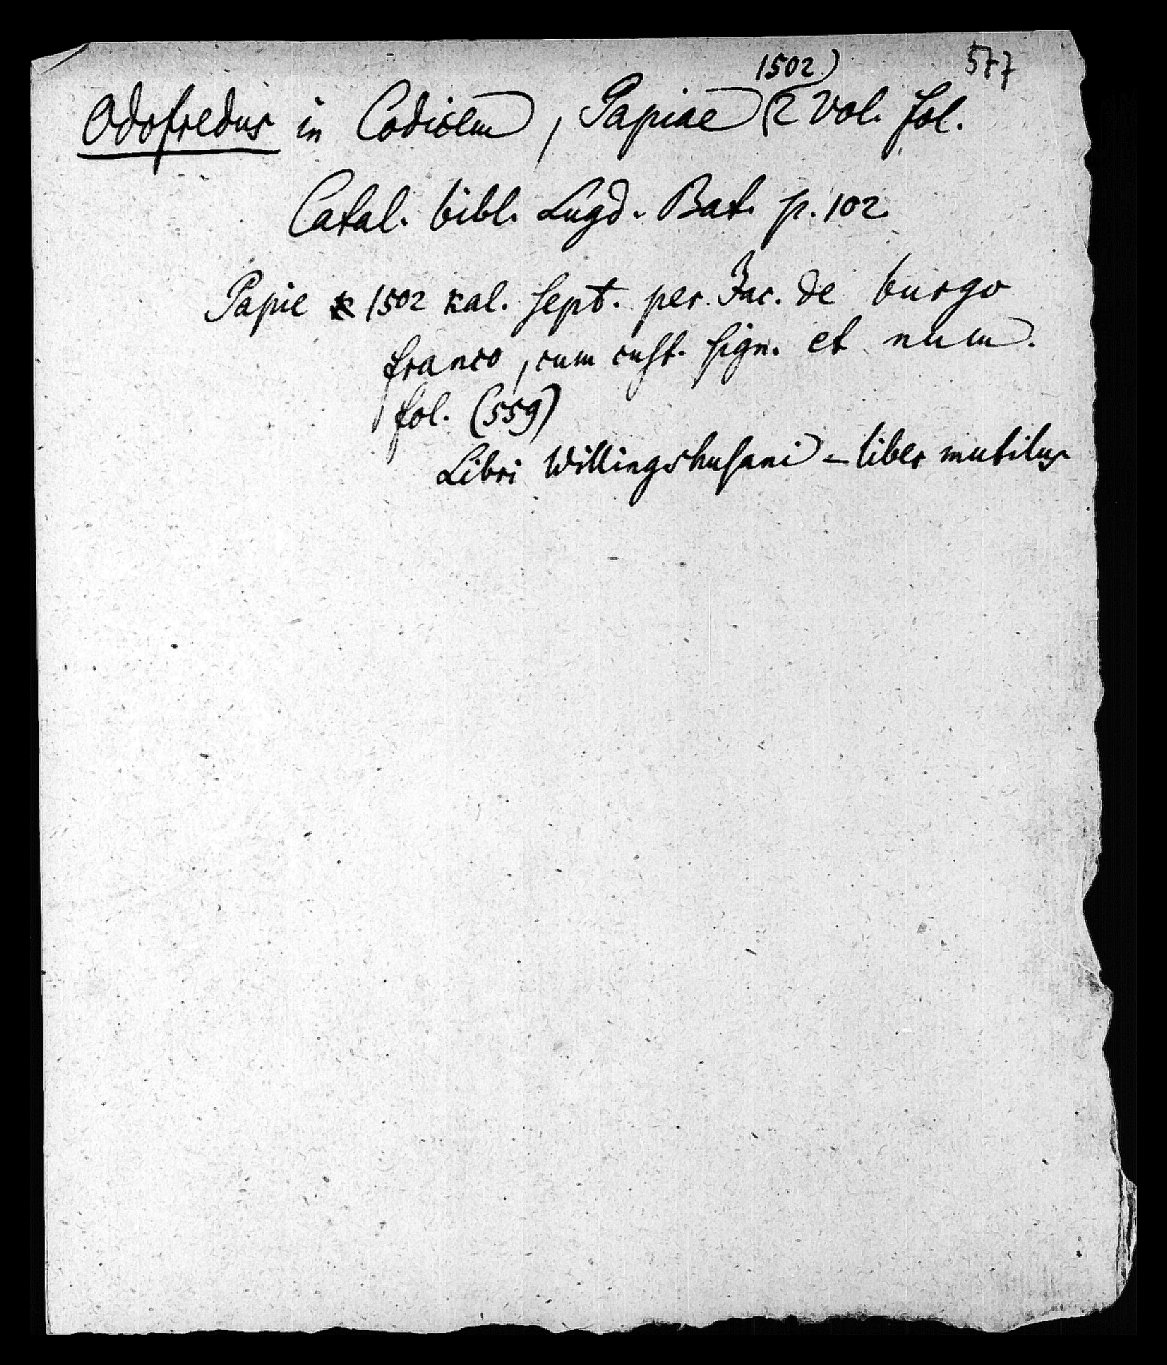 577
Odofredus in Codicem, Papiae 1502) (2 vol. fol.
Catal. bibl. Lugd. Bat. p. 102.
Papie 1502 kal. sept. per Jac. de burgo
franco, cum cust. sign. et num.
fol. (559)
Libri Willingshusani – liber mutilus